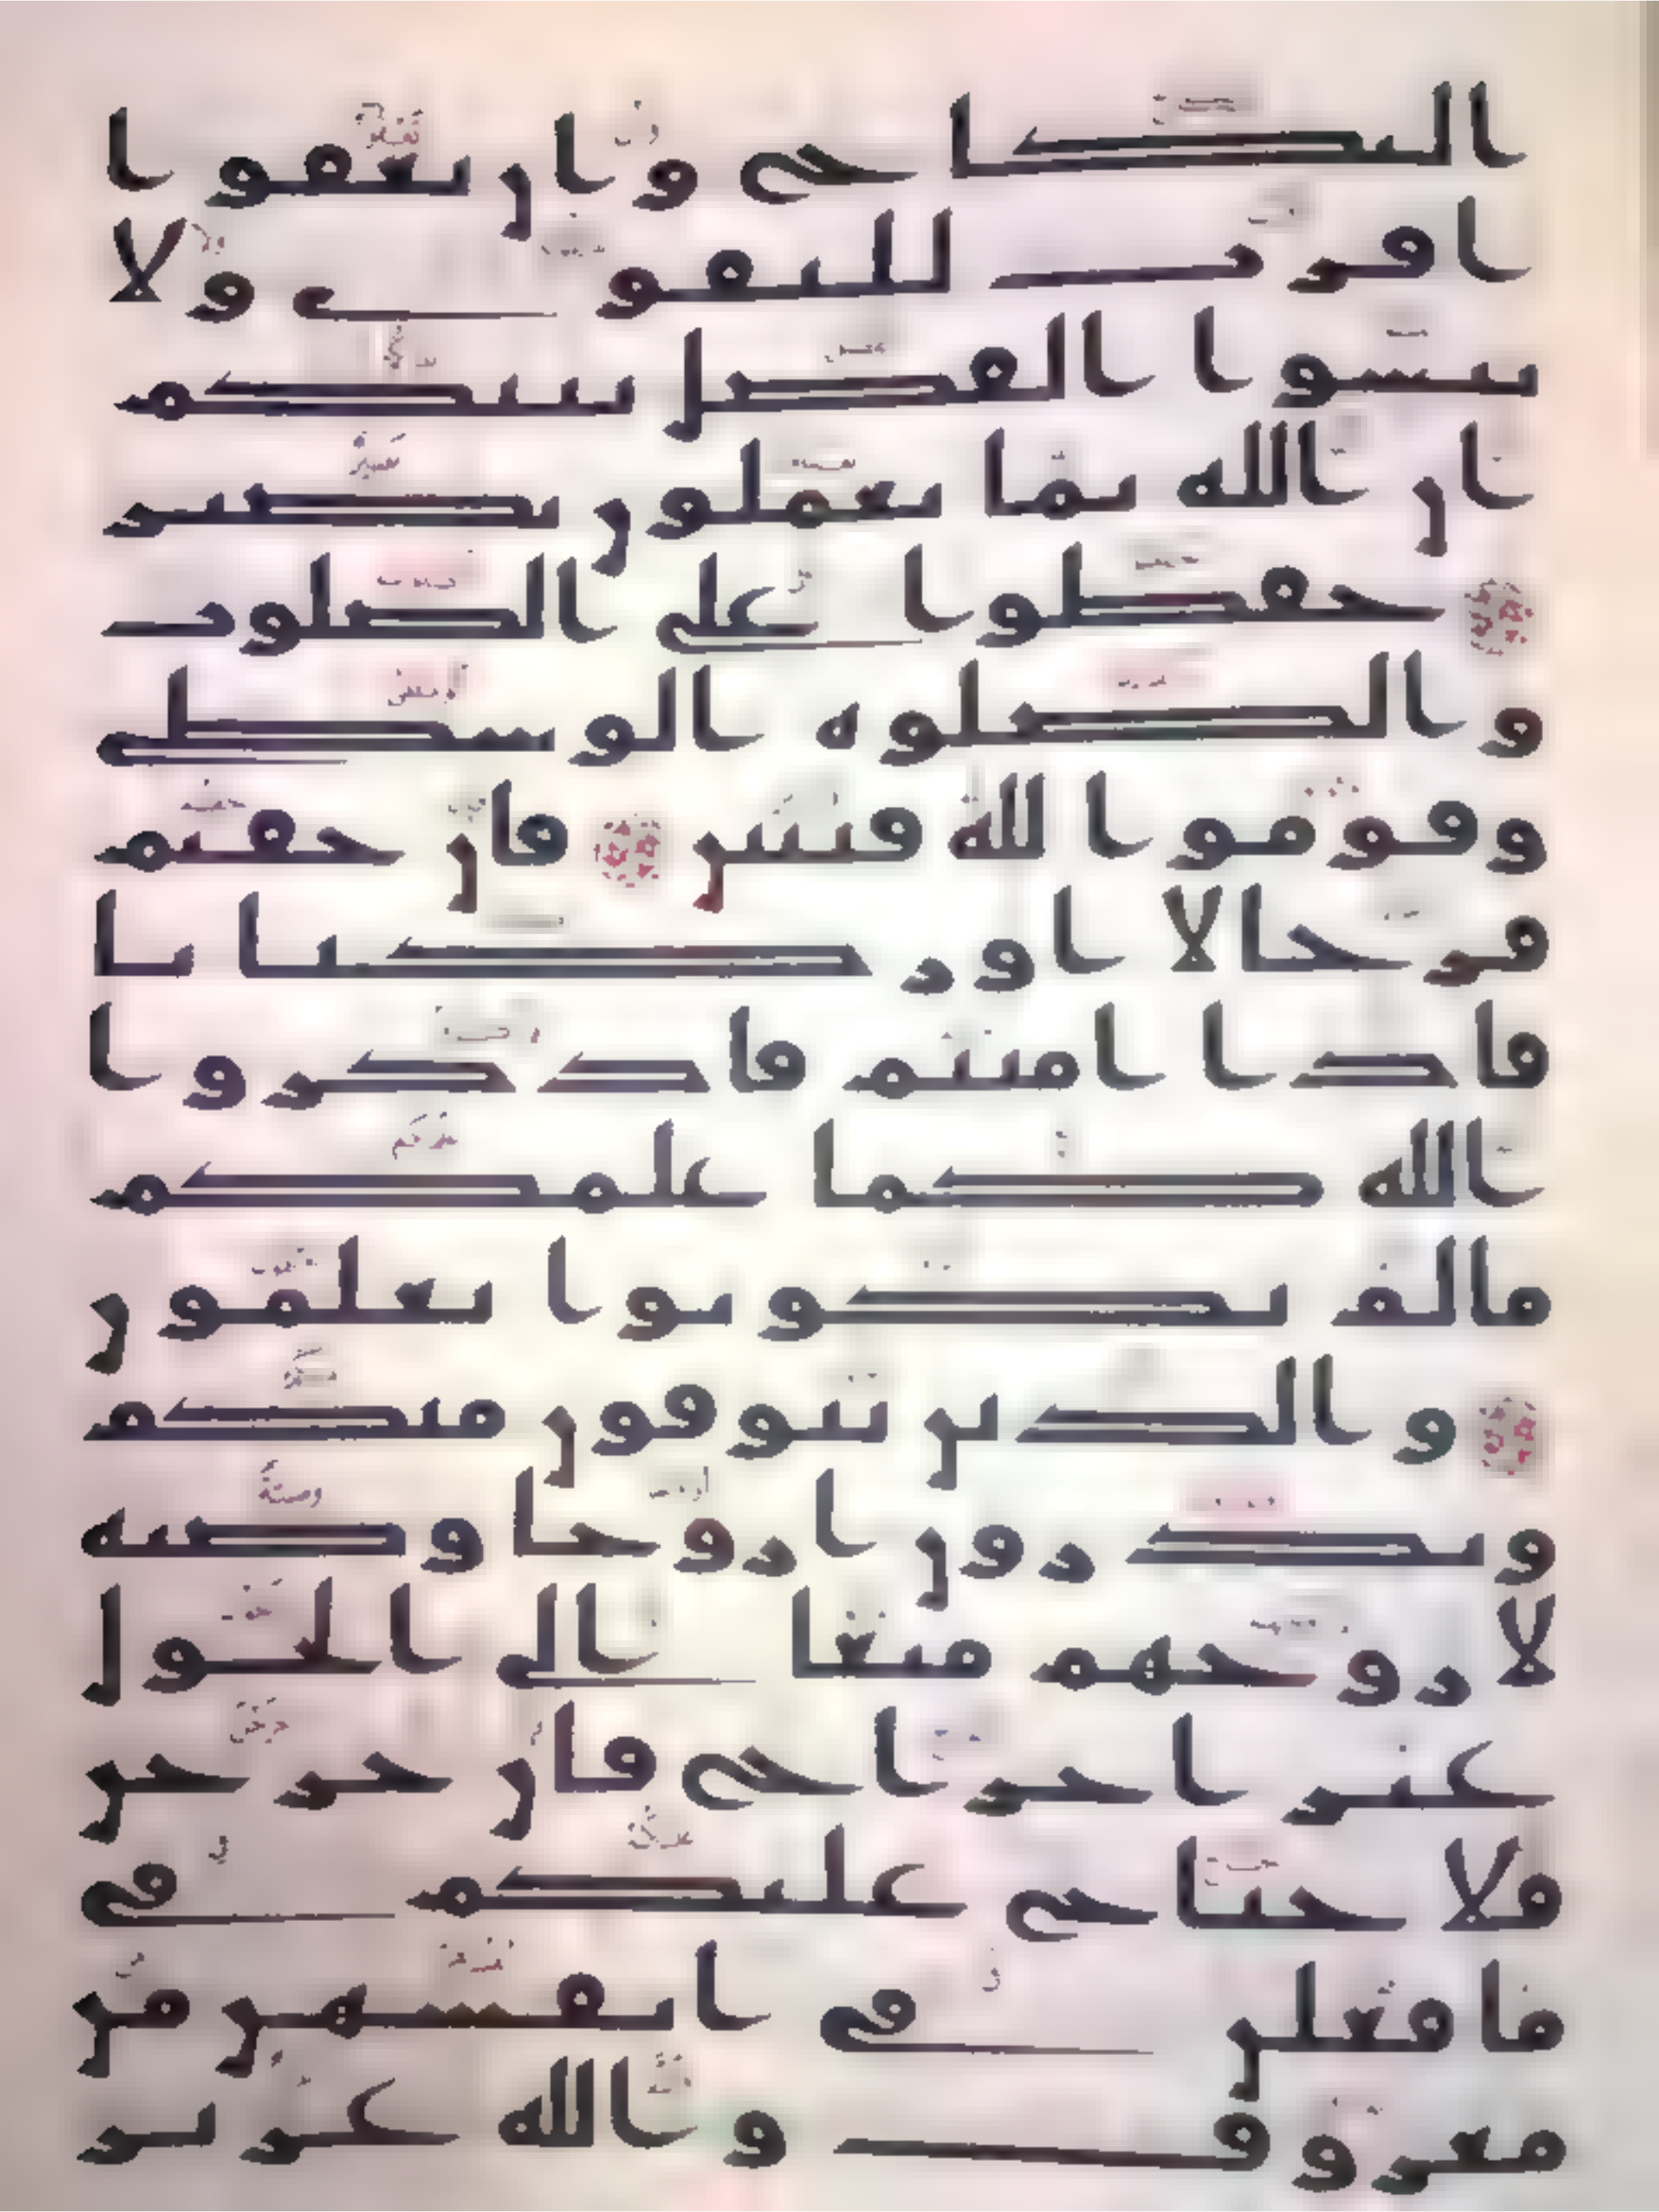 النكاح وان تعفوا
اقرب للتقوى ولا
تنسوا الفضل بينكم
ان الله بما تعملون بصير
حفظوا على الصلوت
والصلوه الوسطى
وقوموا لله قنتين فان خفتم
فرجالا او ركبانا
فاذا امنتم فاذكروا
الله كما علمكم
مالم تكونوا تعلمون
والذين يتوفون منكم
ويذرون ازوجا وصيه
لازوجهم متعا الى الحول
غير اخراج فان خرجن
فلا جناح عليكم في
ما فعلن في انفسهن من
معروف والله عزيز